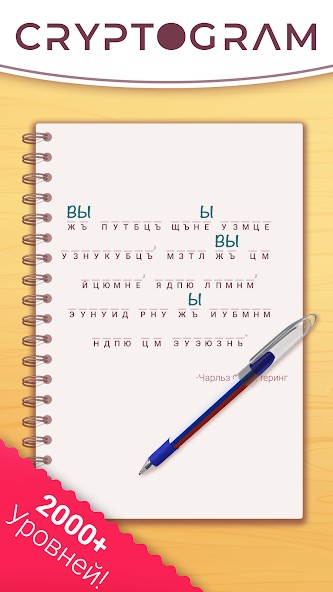 CRYPTOGRAM
ВЫ Ы
ЖЪ ПУТБЦЪ ЩЪНЕ УЗМЦЕ
ВЫ
УЗНУКУБЦЪ, МЗТЛ ЖЪ ЦМ
ЙЦЮМНЕ, ЯДПЮ ЛПМНМ,
Ы
ЭУНУИД РНУ ЖЪ ИУБМНМ
НДПЮ ЦМ ЭУЭЮЗНЬ.
-Чарльз теринг
2000+
уровней!